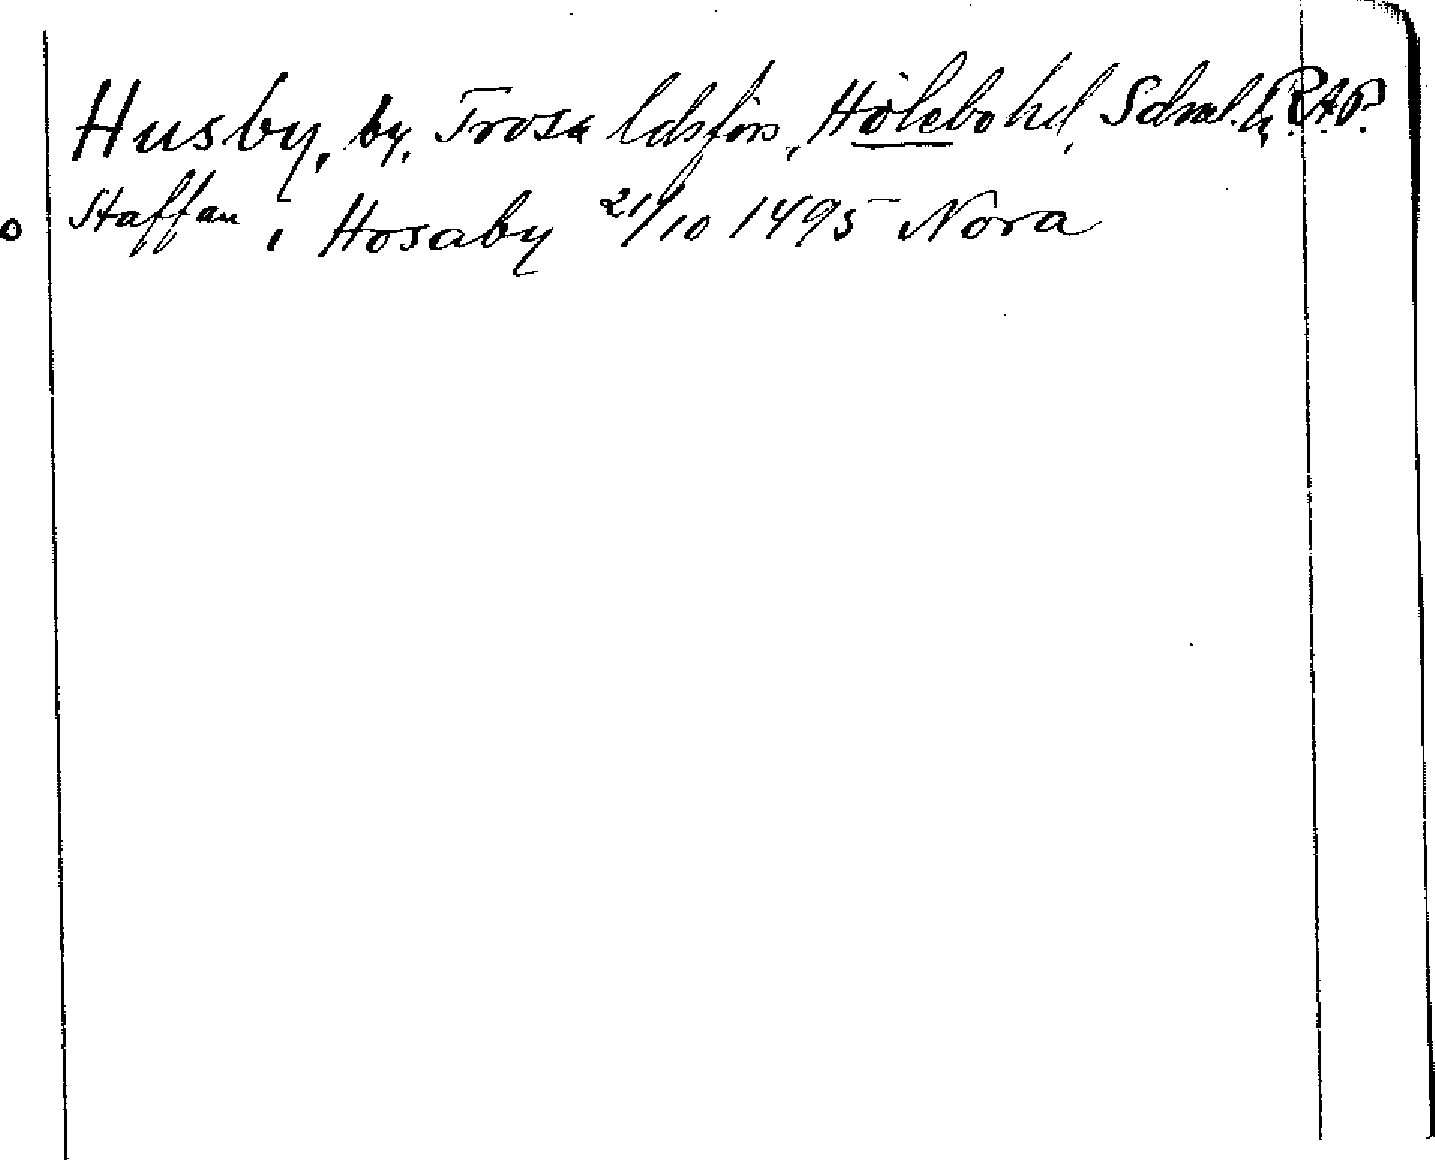 Husby, by, Trosa ldsförs, Hölebo hd, Sdml. R.A.P.
Staffan i Hosaby 21/10 1495 Nora